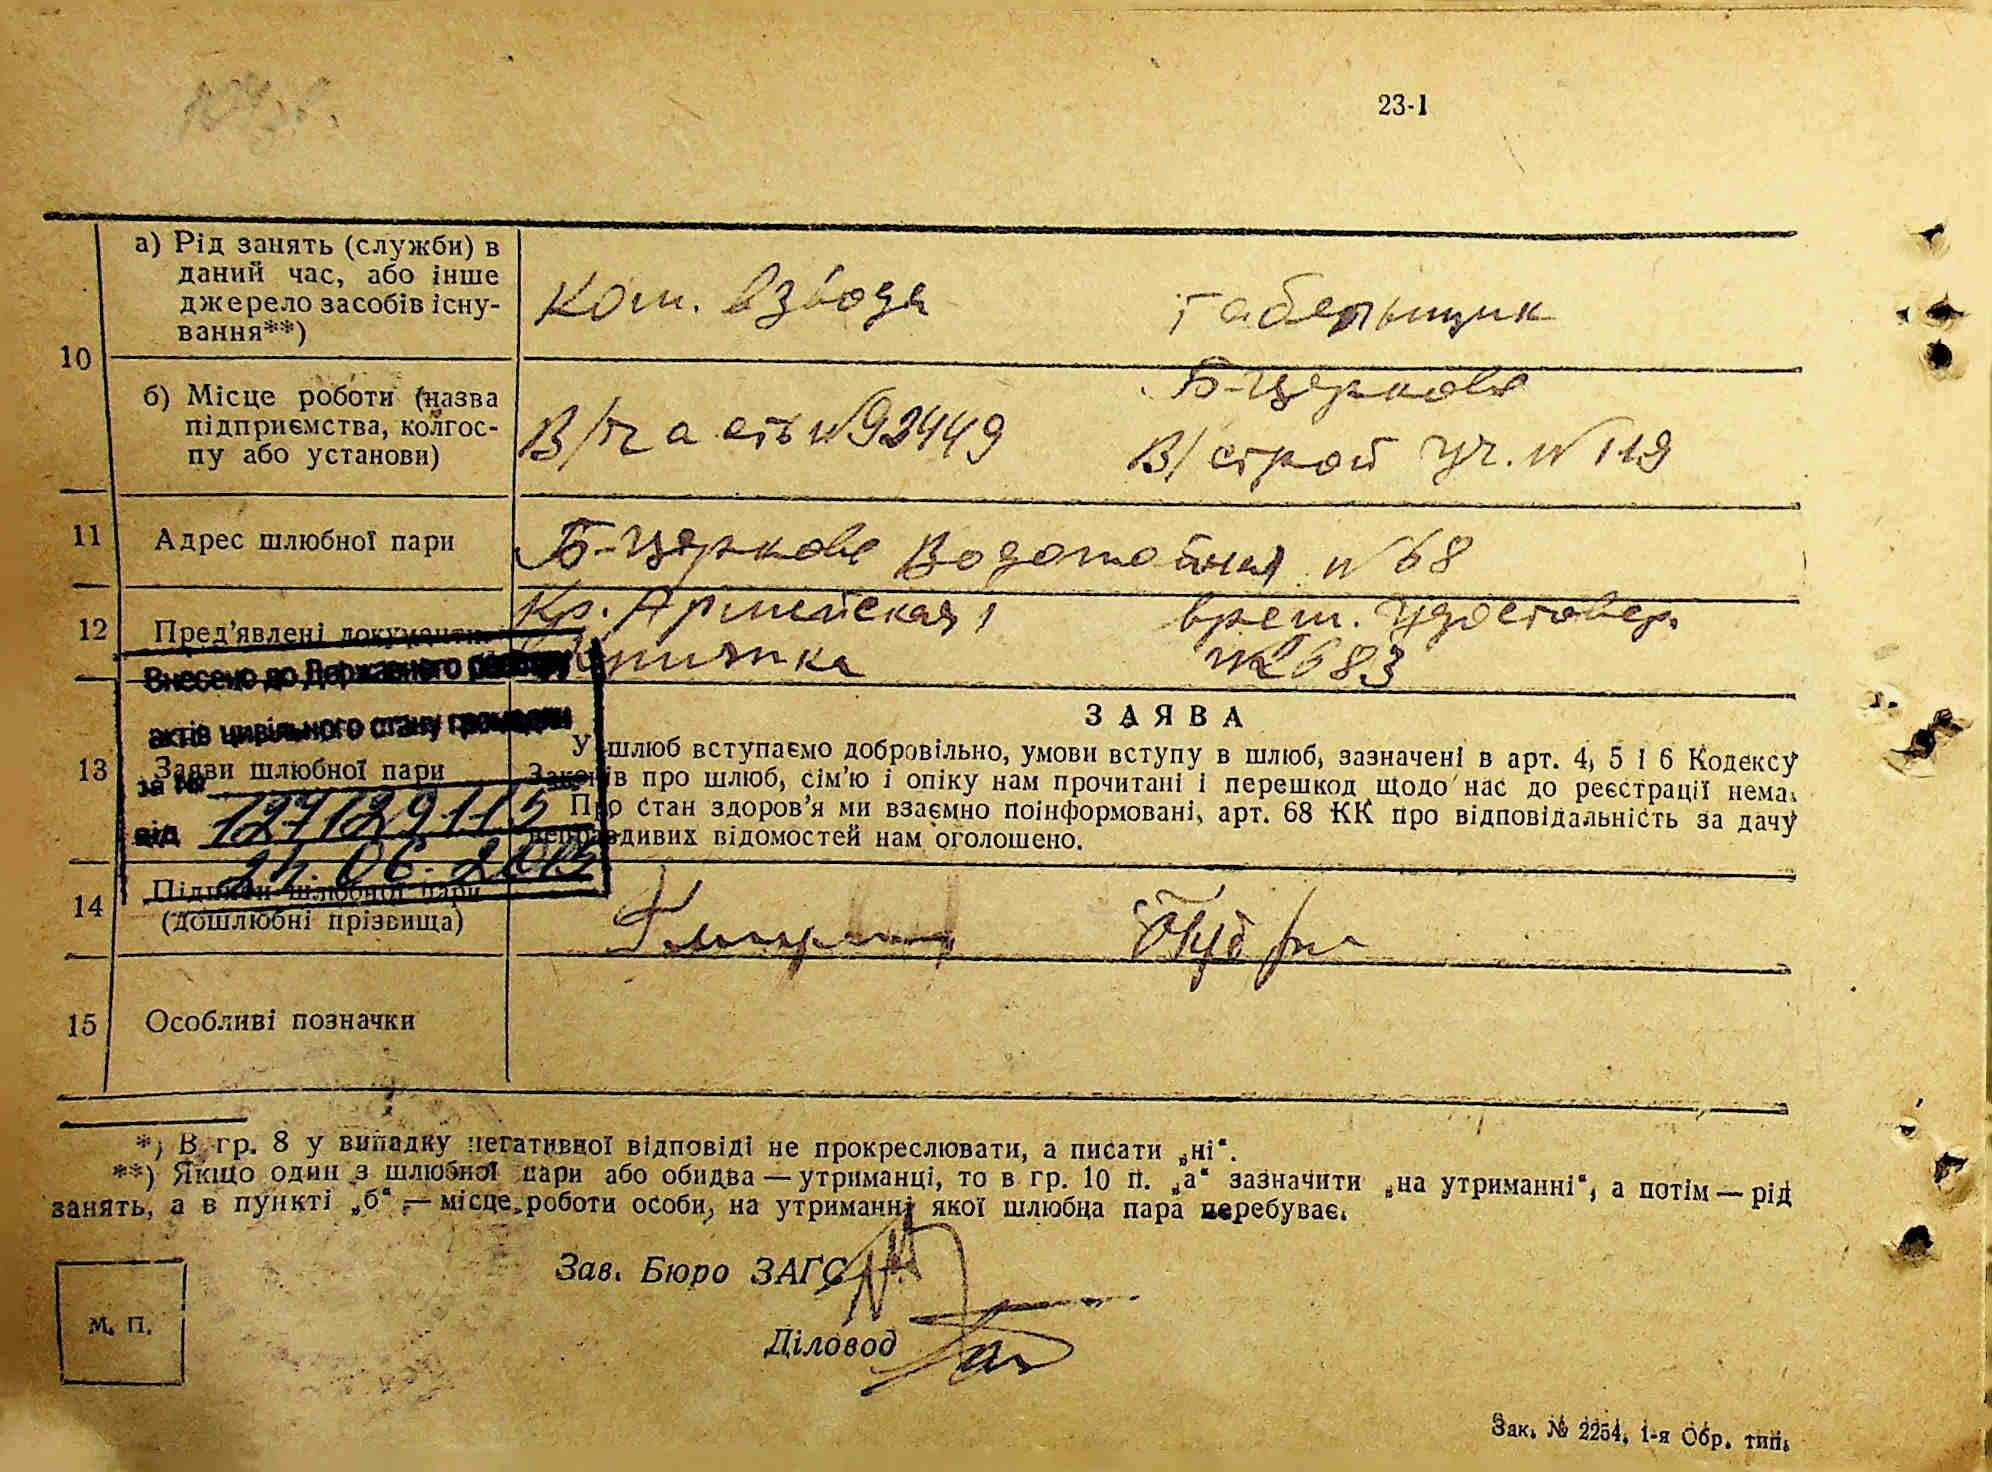 23-1
10
а) Рід занять (служби) в
даний час, або інше
джерело засобів існу-
вання**)
Ком. взвода
табельщик
б) Місце роботи (назва
підприємства, колгос-
пу або установи)
В/часть №92449
Б-Церковь
В/строй уч. № 119
11
Адрес шлюбної пари
Б-Церковь Водопойная №68
12
Пред'явлені документи
Кр. Армейская
книжка
врем. удостовер.
№683
Внесено до Державного реєстру
актів цивільного стану громадян
за №
від
24.06.2013
13
Заяви шлюбної пари
ЗАЯВА
У шлюб вступаємо добровільно, умови вступу в шлюб, зазначені в арт. 4, 5 і 6 Кодексу
Законів про шлюб, сім'ю і опіку нам прочитані і перешкод щодо нас до реєстрації нема.
Про стан здоров'я ми взаємно поінформовані, арт. 68 КК про відповідальність за дачу
неправдивих відомостей нам оголошено.
14
Підписи шлюбної пари
(дошлюбні прізвища)
15
Особливі позначки
*) В гр. 8 у випадку негативної відповіді не прокреслювати, а писати „ні“.
**) Якщо один з шлюбної пари або обидва — утриманці, то в гр. 10 п. „а“ зазначити „на утриманні“, а потім — рід
занять, а в пункті „б“ — місце роботи особи, на утриманні якої шлюбна пара перебуває.
Зав. Бюро ЗАГС
Діловод
М. П.
Зак. № 2254, 1-я Обр. тип.